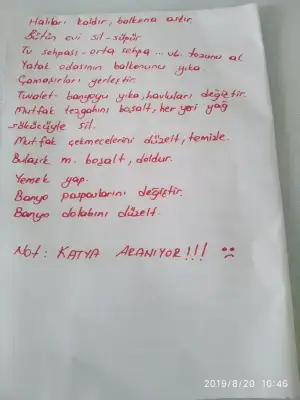 Halıları kaldır, balkona astır.
Bütün evi sil-süpür
Tv sehpası-orta sehpa... vb. tozunu al
Yatak odasının balkonunu yıka.
Çamaşırları yerleştir.
Tuvalet-banyoyu yıka, havluları değiştir.
Mutfak tezgahını boşalt, her yeri yağ
sökücüyle sil.
Mutfak çekmecelerini düzelt, temizle.
Bulaşık m. boşalt, doldur.
Yemek yap.
Banyo paspaslarını değiştir.
Banyo dolabını düzelt.
Not: KATYA ARANIYOR!!! :(
2019/8/20 10:46